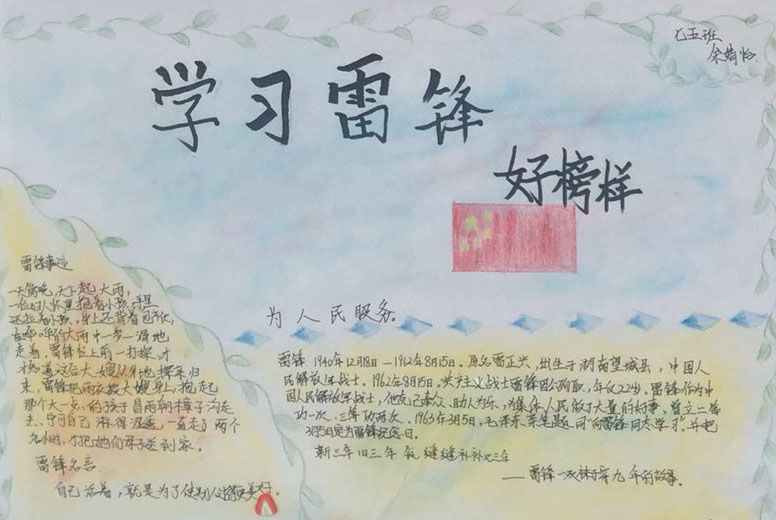 七五班
余婧怡
学习雷锋
好榜样
雷锋事迹
一天傍晚,天下起大雨,
一位妇人怀里抱着小孩,手里
还拉着小孩,身上还背着包袱,
在哗哗的大雨中一步一滑地
走着。雷锋赶上前一打探,才
知道这位大嫂从外地探亲归
来,雷锋把雨衣披大嫂身上,抱起
那个大一步的孩子冒雨朝樟子沟走
去,宁可自己淋得湿透,一直走了两个
九小时,才把她们母子送到家。
雷锋名言
自己活着,就是为了使别人过得更美好。
为人民服务。
雷锋 1940年12月18日—1962年8月15日。原名雷正兴,出生于湖南望城县,中国人
民解放军战士,1962年8月15日,共产主义战士雷锋因公殉职,年仅22岁。雷锋作为中
国人民解放军战士,他克己奉公,助人为乐,为集体人民做了大量的好事,曾立二等
功一次、三等功两次。1963年3月5日,毛泽东亲笔题词"向雷锋同志学习"并把
3月5日定为雷锋纪念日。
新三年旧三年 缝缝补补又三年
——雷锋一双袜子穿九年的故事.